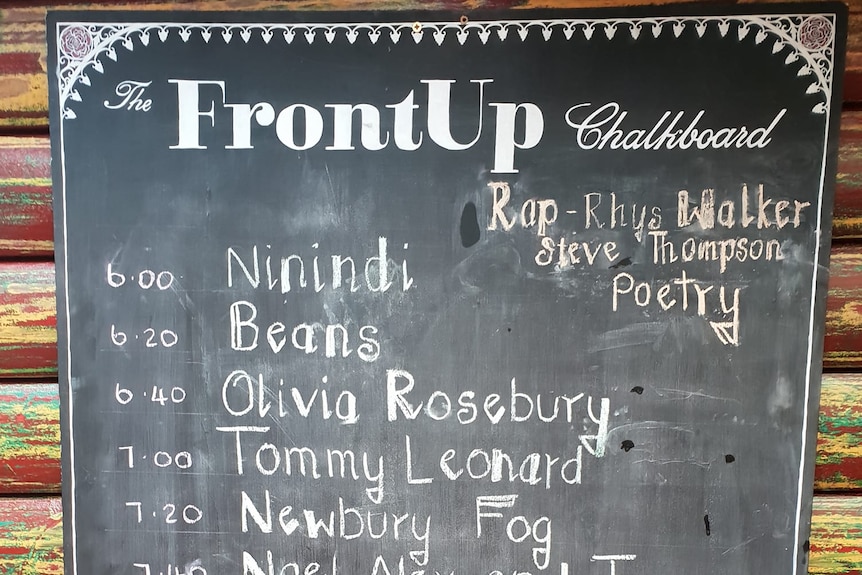 The FrontUp Chalkboard
Rap - Rhys Walker
Steve Thompson
Poetry
6.00 Ninindi
6.20 Beans
6.40 Olivia Rosebury
7.00 Tommy Leonard
7.20 Newbury Fog
7.40 Noel